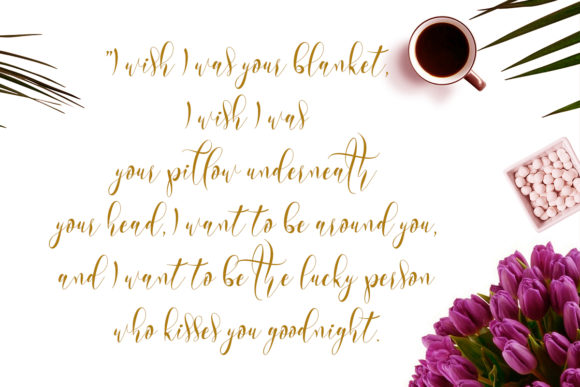 "I wish I was your blanket,
I wish I was
your pillow underneath
your head, I want to be around you,
and I want to be the lucky person
who kisses you goodnight.